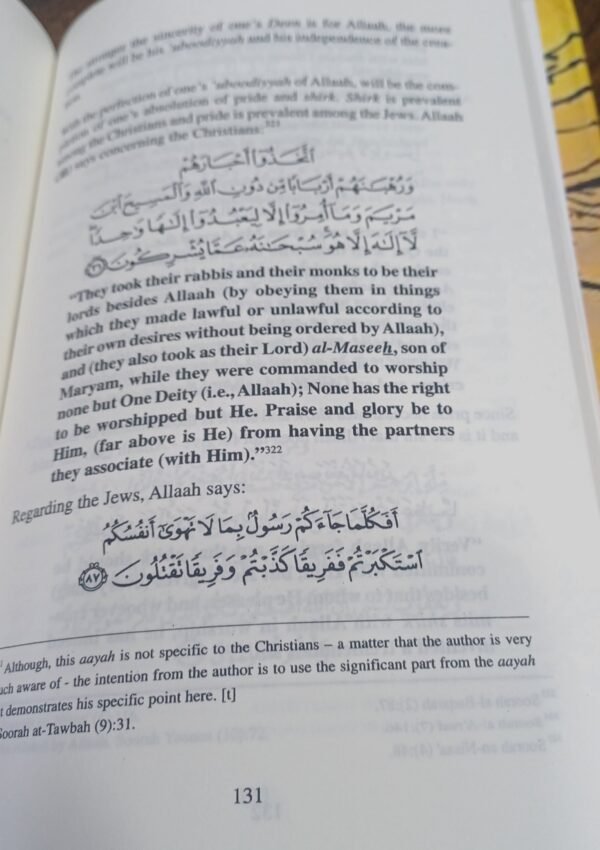 The stronger the sincerity of one's Deen is for Allaah, the more
complete will be his 'uboodiyyah and his independence of the crea-
tion.
with the perfection of one's 'uboodiyyah of Allaah, will be the com-
pletion of one's absolution of pride and shirk. Shirk is prevalent
among the Christians and pride is prevalent among the Jews. Allaah
says concerning the Christians:
ٱتَّخَذُوٓا۟ أَحْبَارَهُمْ
وَرُهْبَٰنَهُمْ أَرْبَابًا مِّن دُونِ ٱللَّهِ وَٱلْمَسِيحَ ٱبْنَ
مَرْيَمَ وَمَآ أُمِرُوٓا۟ إِلَّا لِيَعْبُدُوٓا۟ إِلَٰهًا وَٰحِدًا
لَّآ إِلَٰهَ إِلَّا هُوَ سُبْحَٰنَهُۥ عَمَّا يُشْرِكُونَ ٣١
"They took their rabbis and their monks to be their
lords besides Allaah (by obeying them in things
which they made lawful or unlawful according to
their own desires without being ordered by Allaah),
and (they also took as their Lord) al-Maseeh, son of
Maryam, while they were commanded to worship
none but One Deity (i.e., Allaah); None has the right
to be worshipped but He. Praise and glory be to
Him, (far above is He) from having the partners
they associate (with Him)."322
Regarding the Jews, Allaah says:
أَفَكُلَّمَا جَآءَكُمْ رَسُولٌۢ بِمَا لَا تَهْوَىٰٓ أَنفُسُكُمُ
ٱسْتَكْبَرْتُمْ فَفَرِيقًا كَذَّبْتُمْ وَفَرِيقًا تَقْتُلُونَ ٨٧
Although, this aayah is not specific to the Christians – a matter that the author is very
aware of - the intention from the author is to use the significant part from the aayah
demonstrates his specific point here. [t]
Soorah at-Tawbah (9):31.
131